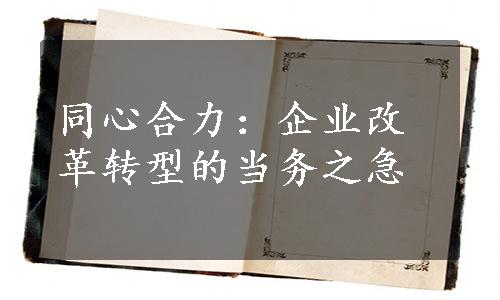 同心合力：企业改
革转型的当务之急